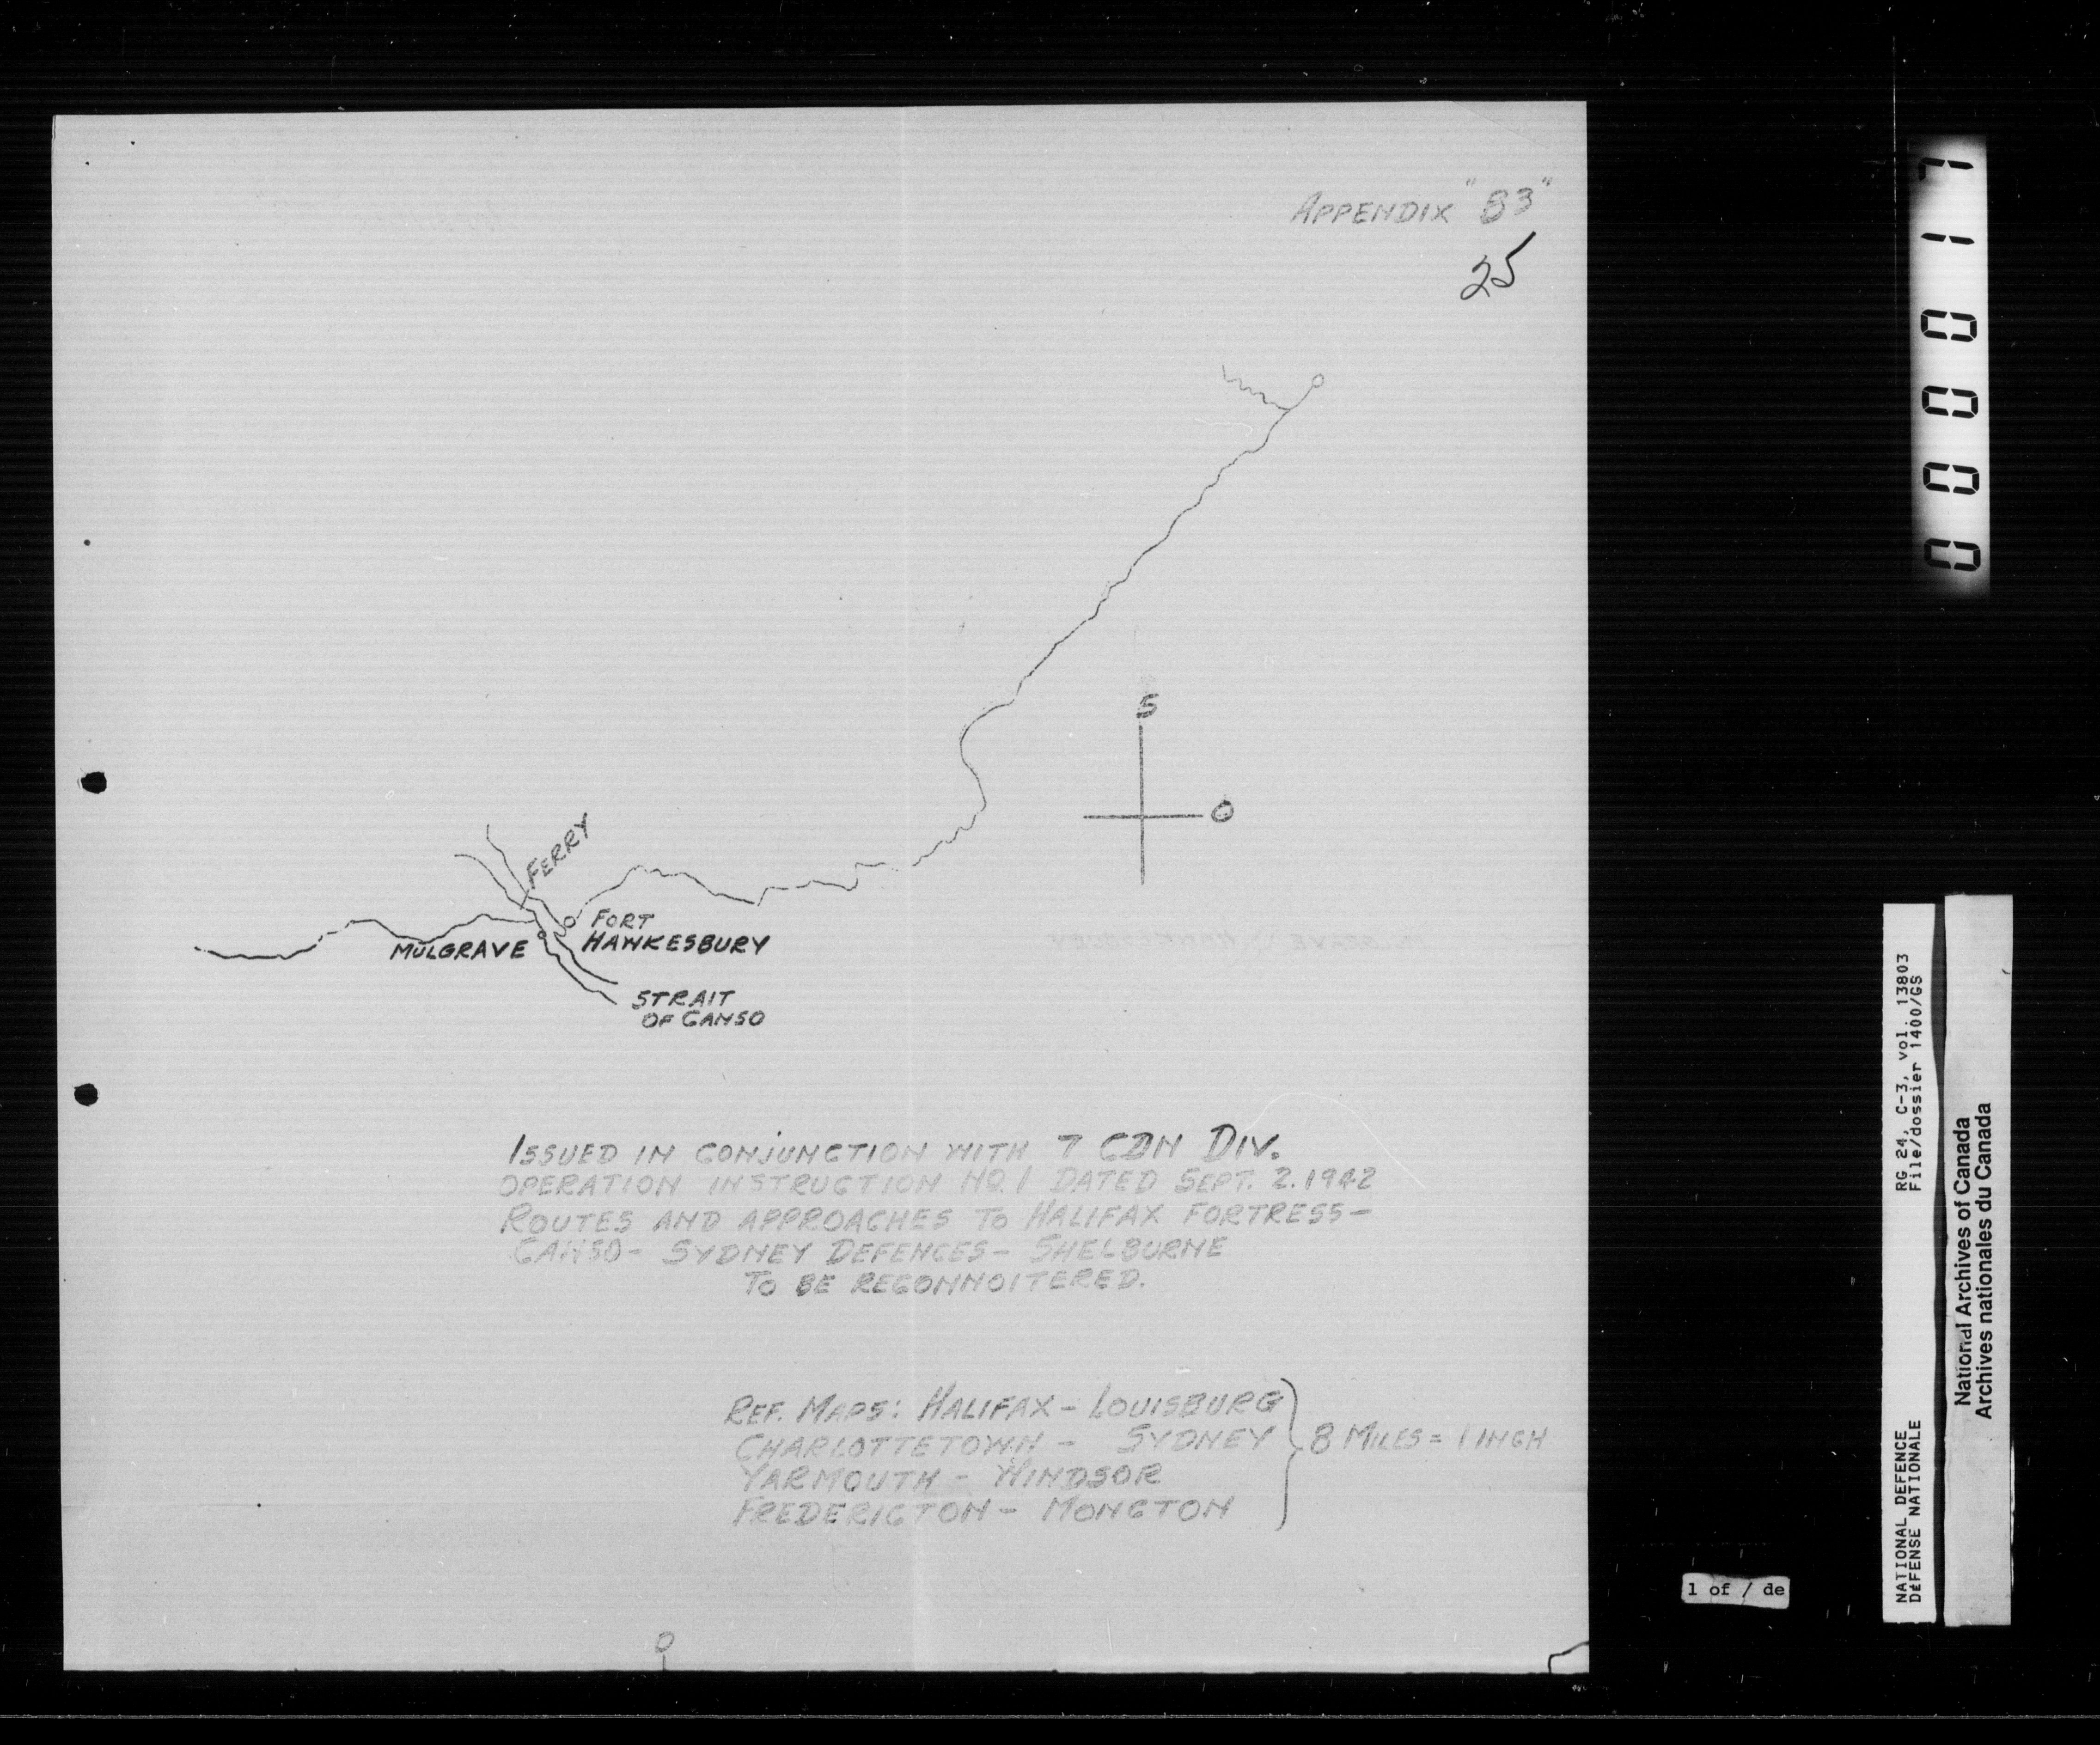 APPENDIX "B3"
25
S
O
FERRY
FORT
HAWKESBURY
MULGRAVE
STRAIT
OF CANSO
ISSUED IN CONJUNCTION WITH 7 CDN DIV.
OPERATION INSTRUCTION NO.1 DATED SEPT. 2. 1942
ROUTES AND APPROACHES TO HALIFAX FORTRESS-
CANSO- SYDNEY DEFENCES- SHELBURNE
TO BE RECONNOITERED.
REF. MAPS: HALIFAX - LOUISBURG
CHARLOTTETOWN - SYDNEY
YARMOUTH - WINDSOR
FREDERICTON - MONCTON
8 MILES = 1 INCH
000017
RG 24, C-3, vol. 13803
File/dossier 1400/GS
NATIONAL DEFENCE
DÉFENSE NATIONALE
National Archives of Canada
Archives nationales du Canada
1 of / de